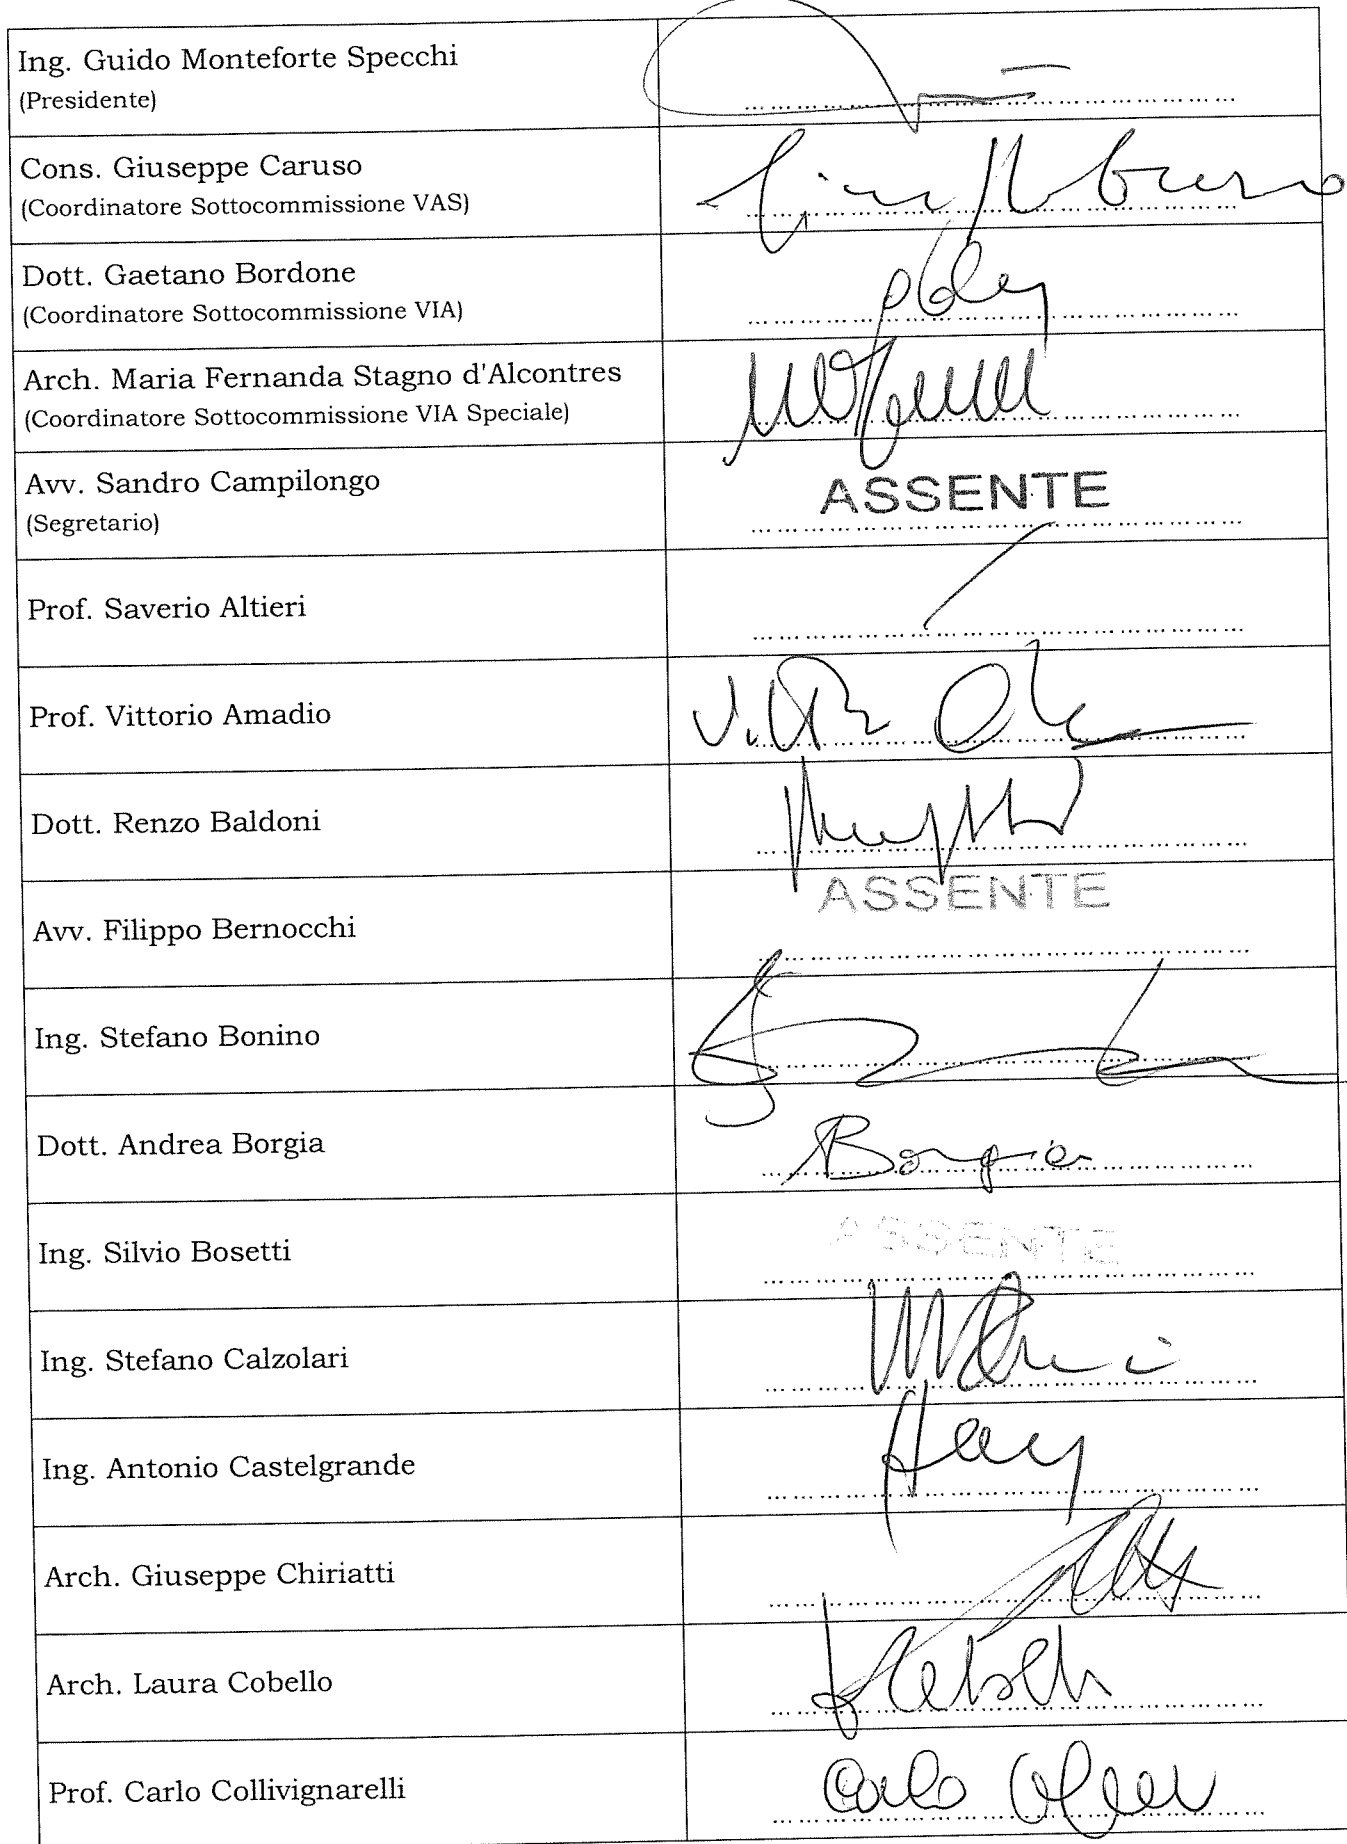 Ing. Guido Monteforte Specchi
(Presidente)
Cons. Giuseppe Caruso
(Coordinatore Sottocommissione VAS)
Dott. Gaetano Bordone
(Coordinatore Sottocommissione VIA)
Arch. Maria Fernanda Stagno d'Alcontres
(Coordinatore Sottocommissione VIA Speciale)
Avv. Sandro Campilongo
ASSENTE
(Segretario)
Prof. Saverio Altieri
Prof. Vittorio Amadio
Dott. Renzo Baldoni
ASSENTE
Avv. Filippo Bernocchi
Ing. Stefano Bonino
Dott. Andrea Borgia
Borgia
ASSENTE
Ing. Silvio Bosetti
Ing. Stefano Calzolari
Ing. Antonio Castelgrande
Arch. Giuseppe Chiriatti
Arch. Laura Cobello
Prof. Carlo Collivignarelli
Carlo